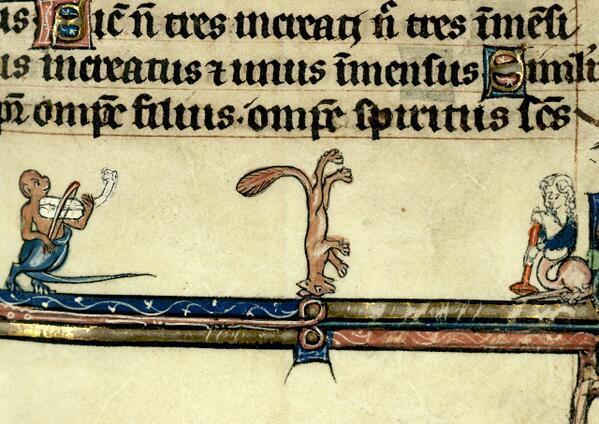 us Sic̄ n̄ tres increati n̄ tres īmēsi
us increatus ⁊ unus īmensus Simili
pr̄ omp̄s filius · omp̄s spiritus sc̄s